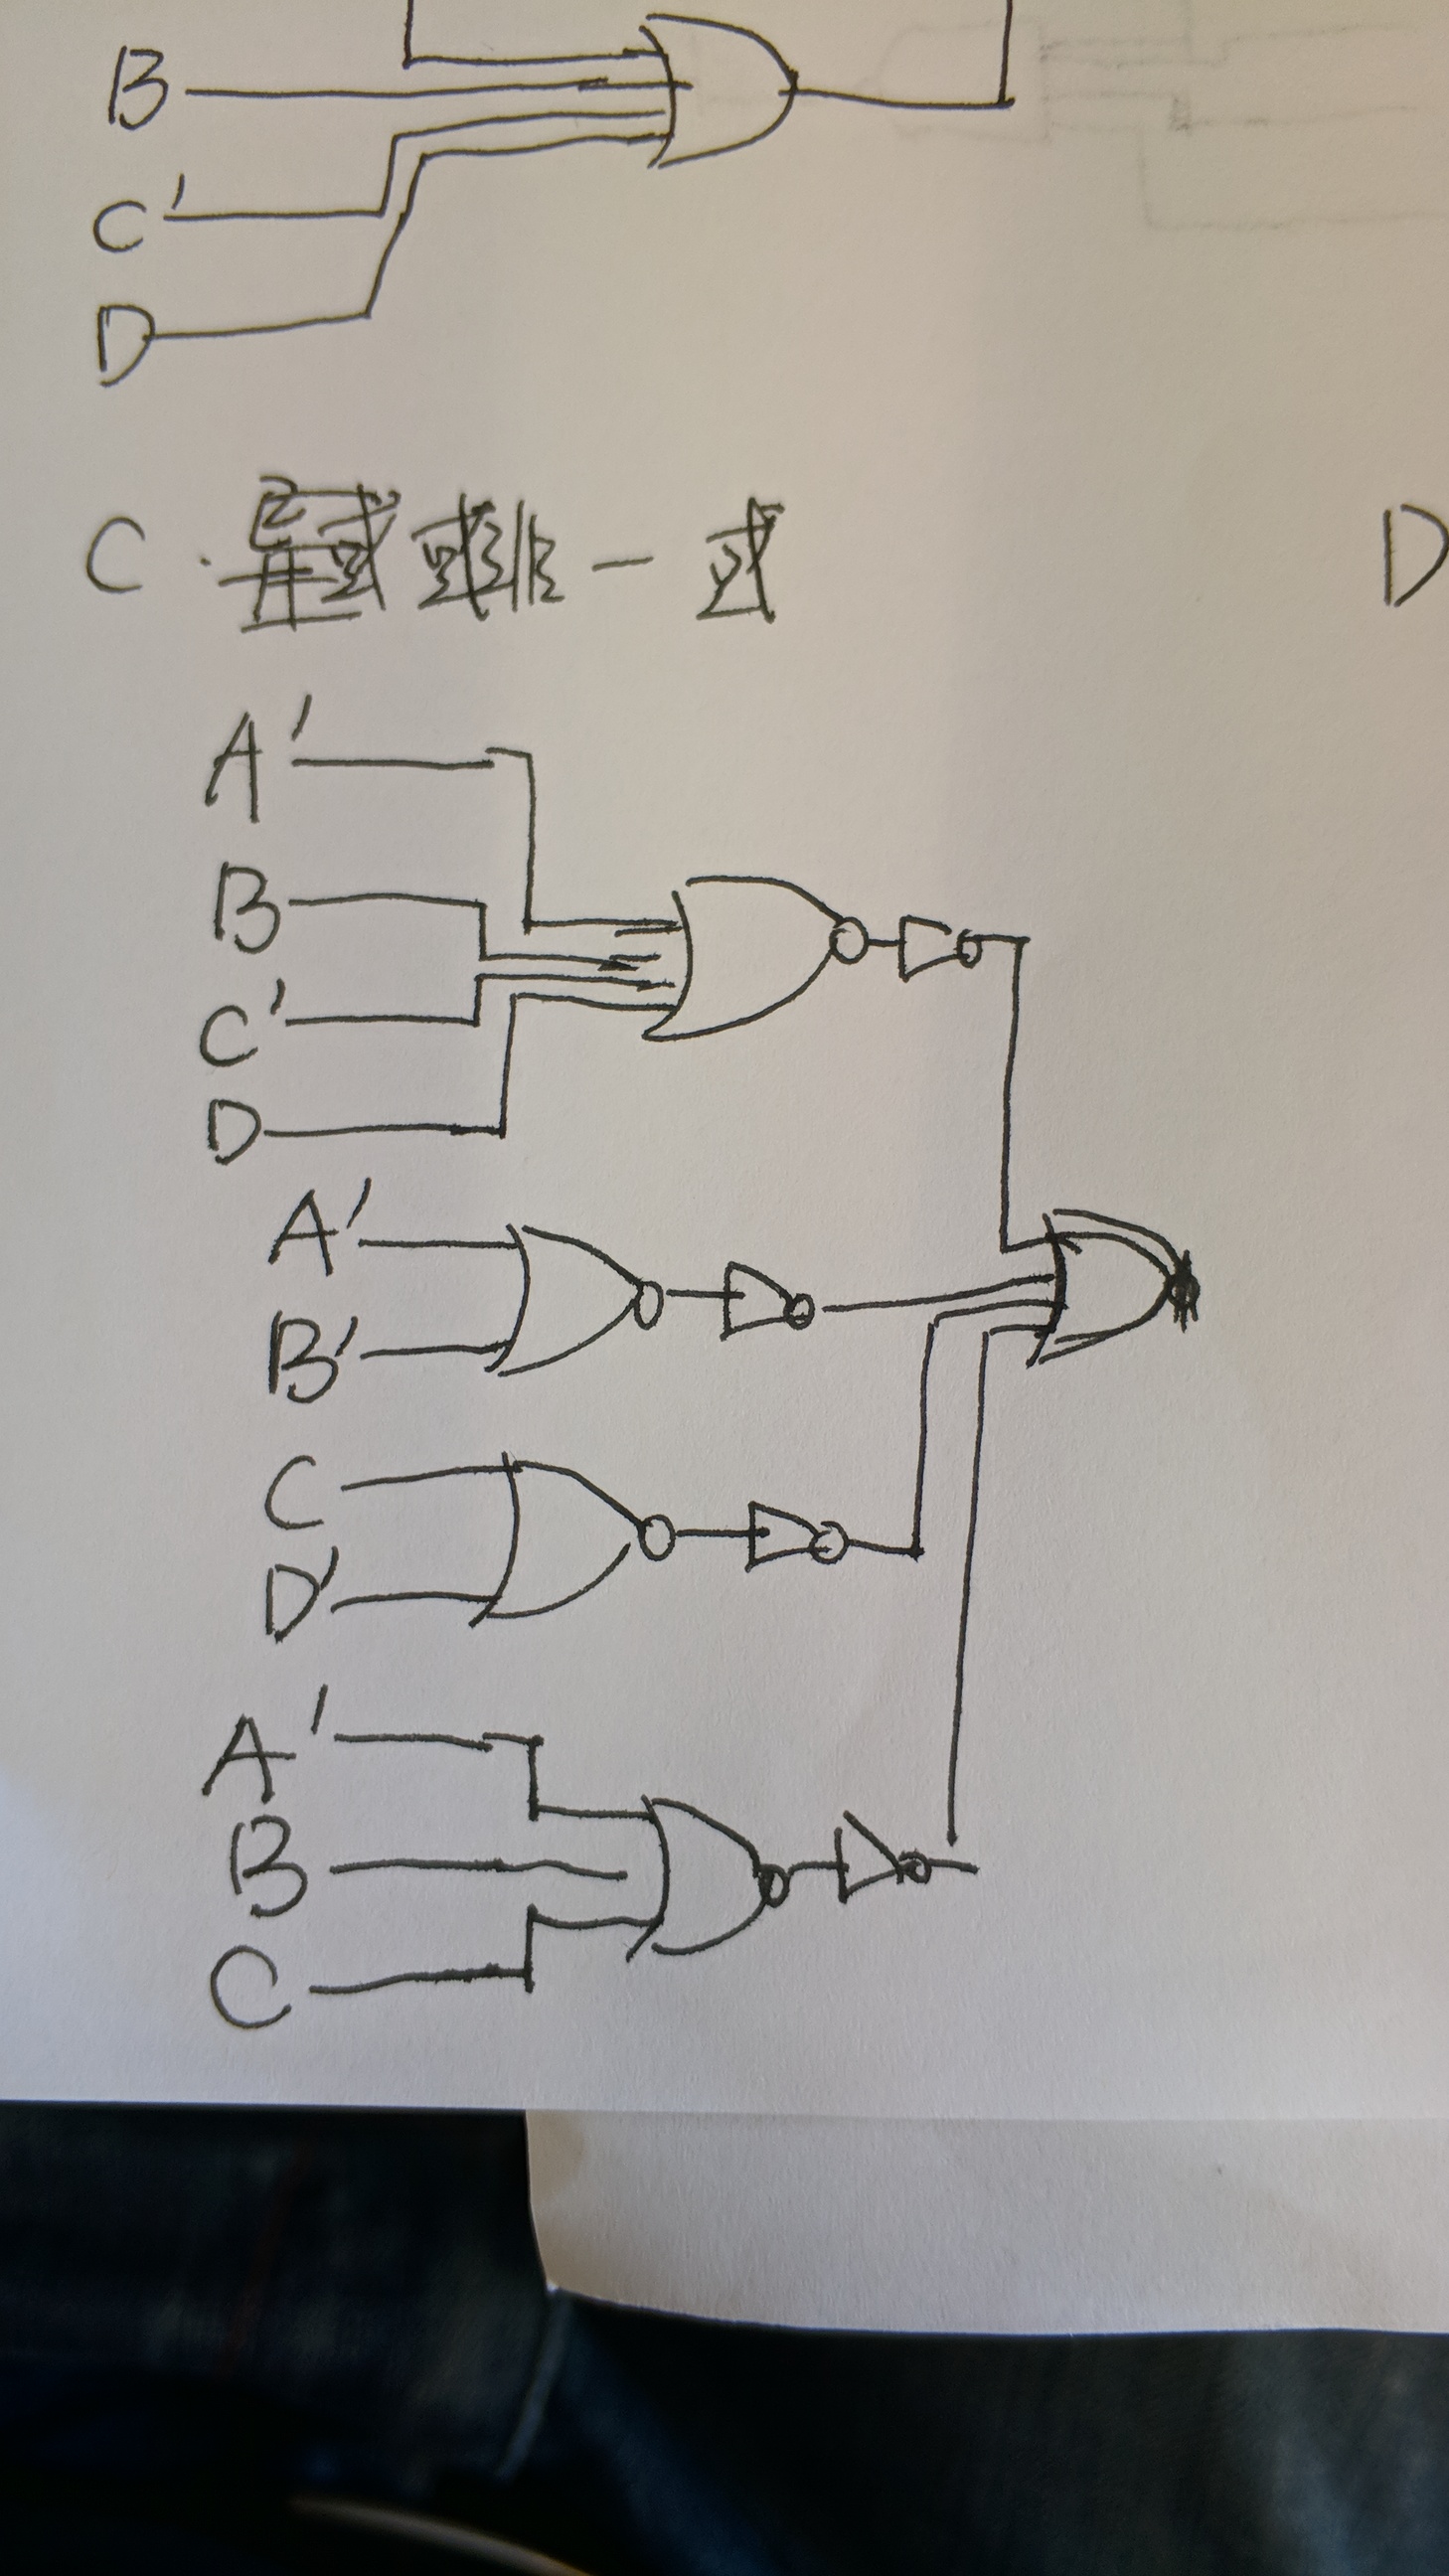 B
C'
D
C. 或非-或
D
A'
B
C'
D
A'
B'
C
D'
A'
B
C